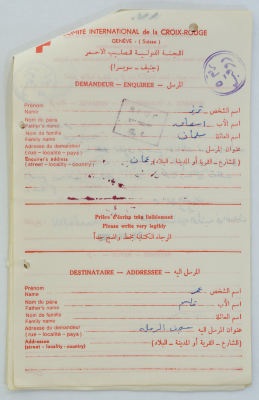 COMITÉ INTERNATIONAL de la CROIX-ROUGE
GENÈVE - (Suisse)
اللجنة الدولية للصليب الاحمر
(جنيف - سويسرا)
DEMANDEUR — ENQUIRER — المرسل
Prénom
Name
اسم الشخص
Nom du père
Father's name
اسم الأب
Nom de famille
Family name
اسم العائلة
سمعان
Adresse du demandeur
(rue - localité - pays)
عنوان المرسل
Enquirer's address
(street - locality - country)
(الشارع - القرية أو المدينة - البلاد)
عمان
Prière d'écrire très lisiblement
Please write very legibly
الرجاء الكتابة بخط واضح جداً
DESTINATAIRE — ADDRESSEE — المرسل اليه
Prénom
Name
اسم الشخص
عمر
Nom du père
Father's name
اسم الأب
Nom de famille
Family name
اسم العائلة
Adresse du demandeur
(rue - localité - pays)
عنوان المرسل اليه
سجن الرملة
Address
(street - locality - country)
(الشارع - القرية أو المدينة - البلاد)